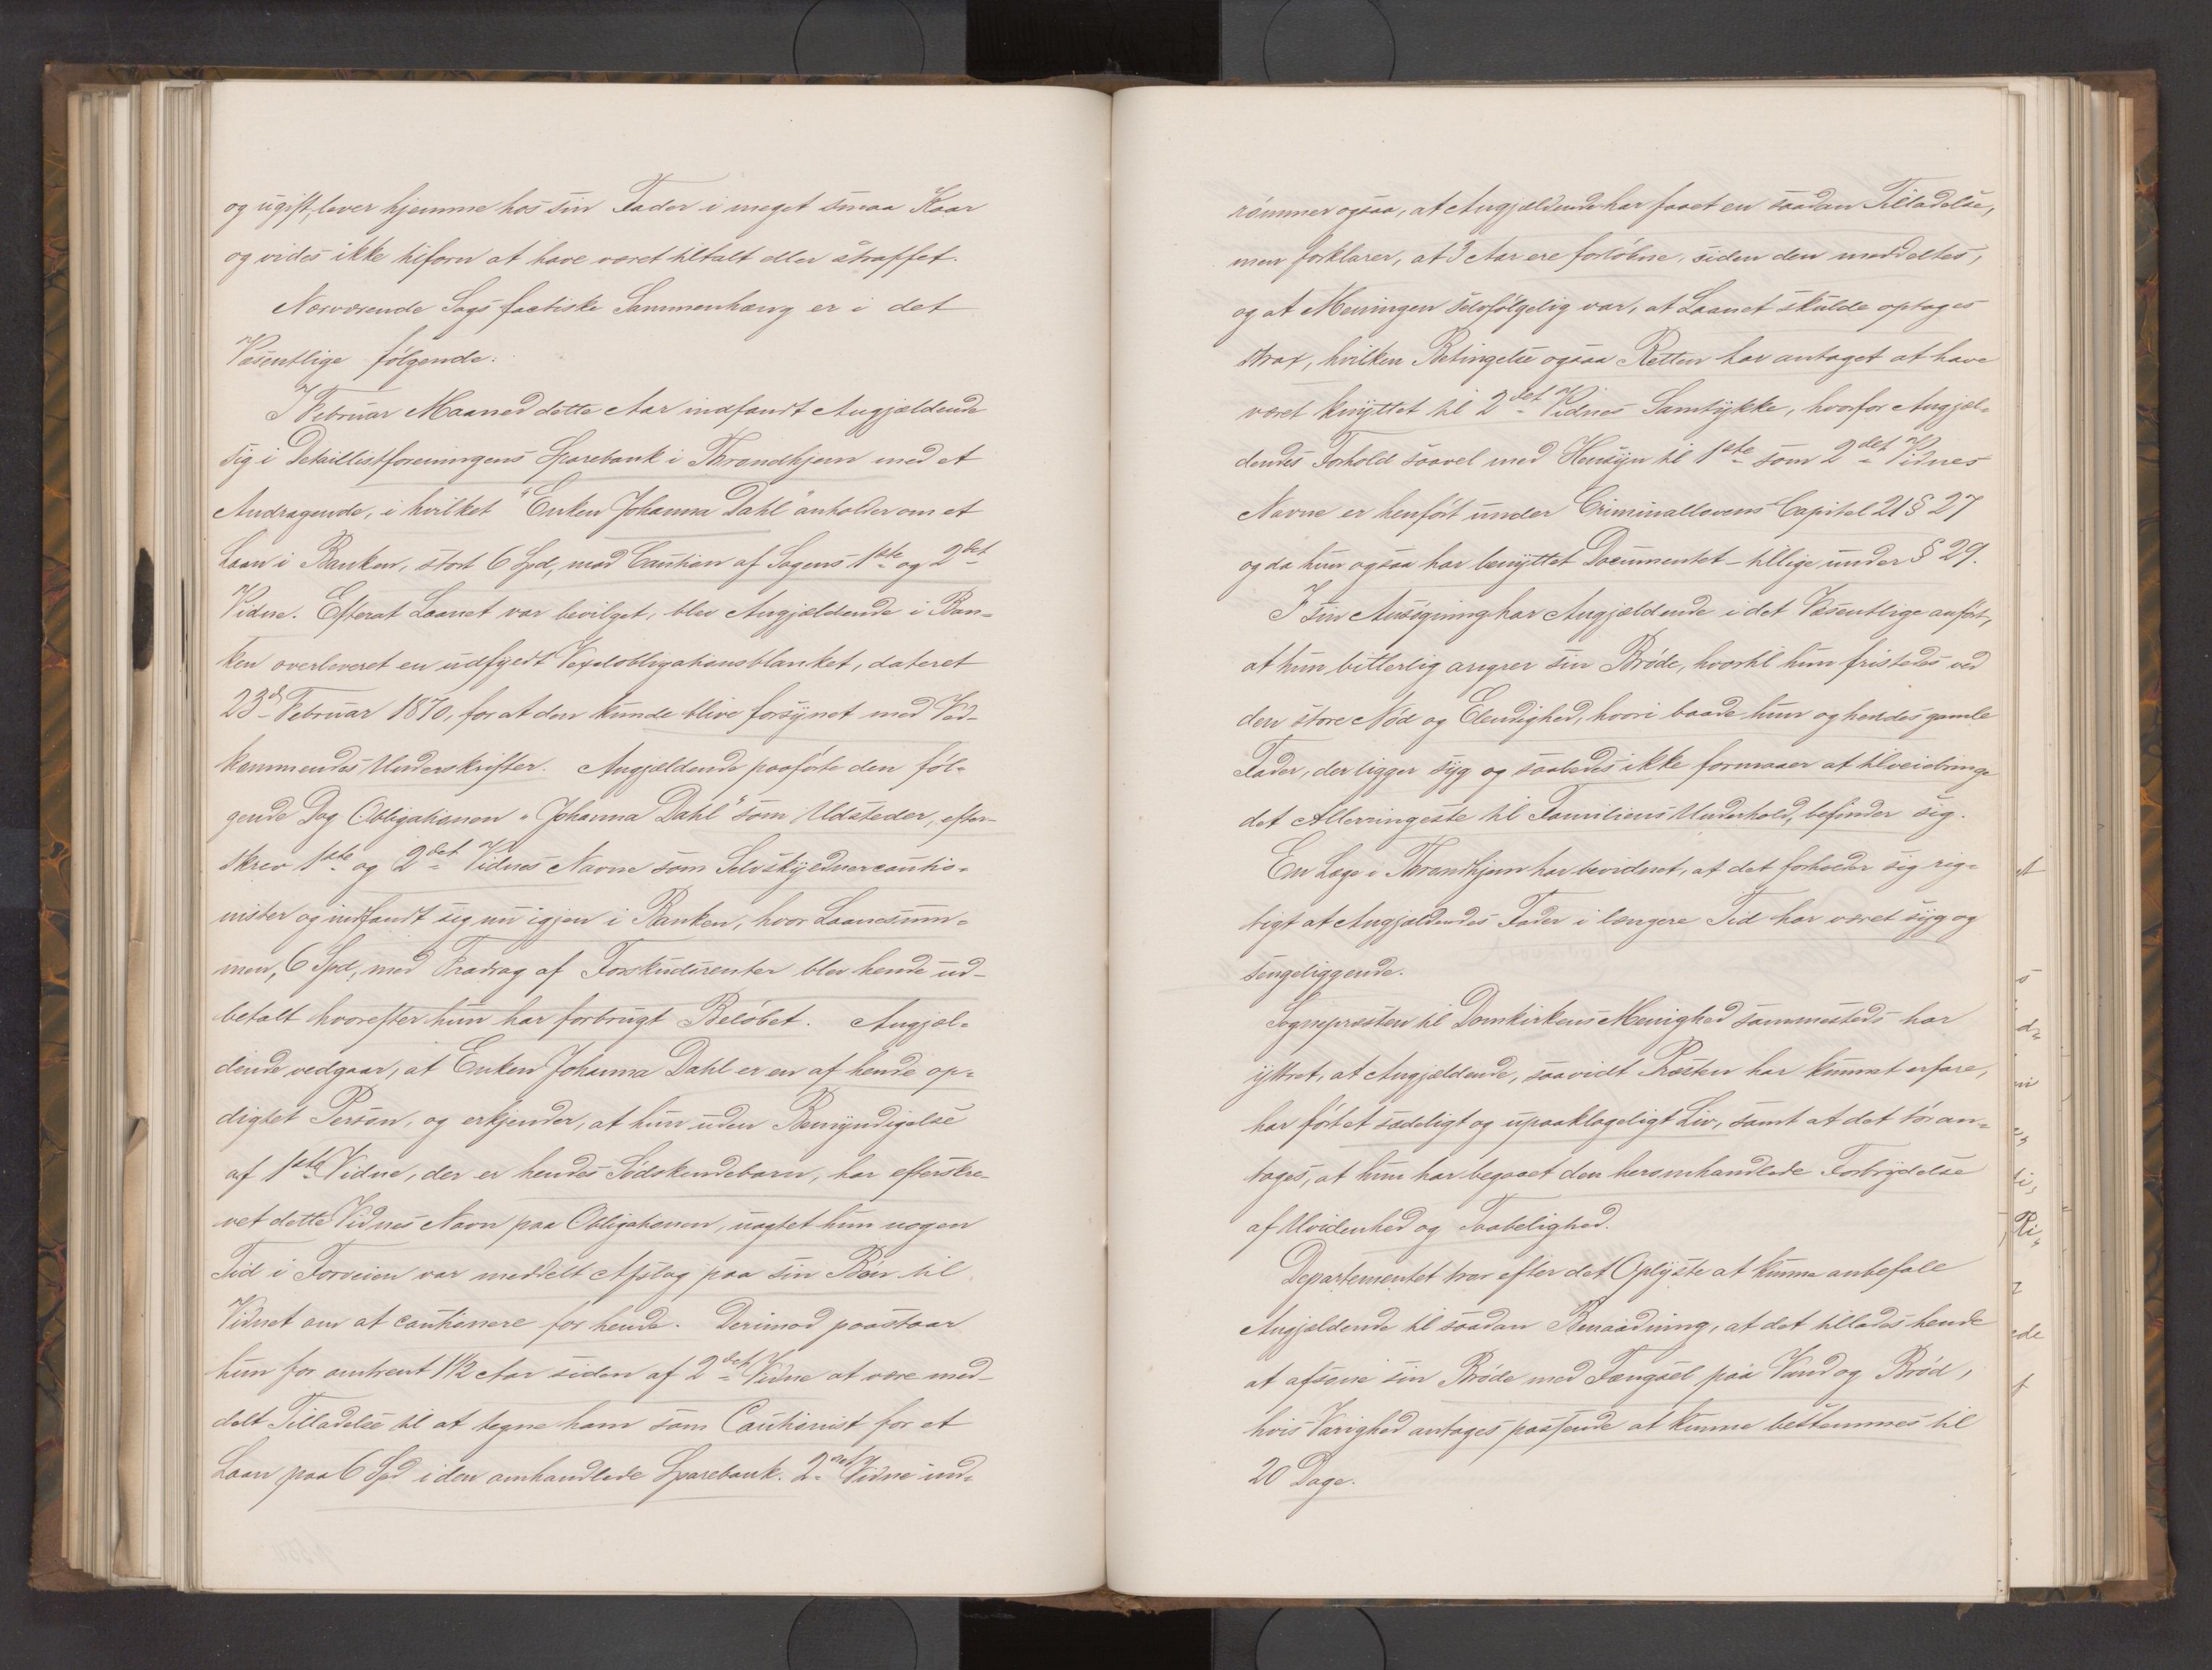 og ugift, lever hjemme hos sin Fader i meget smaa Kaar
og vides ikke tilforn at have været tiltalt eller straffet.
Nærværende Sags factiske Sammenhæng er i det
Væsentlige følgende:
I Februar Maaned dette Aar indfandt Angjældende
sig i Detaillistforeningens Sparebank i Throndhjem med et
Andragende, i hvilket "Enken Johanna Dahl" anholder om et
Laan i Banken, stort 6 Spd, mod Caution af Sagens 1ste og 2det
Vidne. Efterat Laanet var bevilget, blev Angjældende i Ban-
ken overleveret en udfyldt Vexelobligationsblanket, dateret
23d Februar 1870, for at den kunde blive forsynet med Ved-
kommendes Underskrifter. Angjældende paaførte den føl-
gende Dag Obligationen "Johanna Dahl" som Udsteder, efter-
skrev 1ste og 2det Vidnes Navne som Selvskyldnercautio-
nister og indfandt sig nu igjen i Banken, hvor Laanesum-
men, 6 Spd, med Fradrag af Forskudsrenter blev hende ud-
betalt hvorefter hun har forbrugt Beløbet. Angjæl-
dende vedgaar, at Enken Johanna Dahl er en af hende op-
digtet Person, og erkjender, at hun uden Bemyndigelse
af 1ste Vidne, der er hendes Sødskendebarn, har efterskre-
vet dette Vidnes Navn paa Obligationen, uagtet hun nogen
Tid i Forveien var meddelt Afslag paa sin Bøn til
Vidnet om at cautionere for hende. Derimod paastaar
hun for omtrent 1 1/2 Aar siden af 2det Vidne at være med-
delt Tilladelse til at tegne ham som Cautionist for et
Laan paa 6 Spd i den omhandlede Sparebank. 2det Vidne ind-
rømmer ogsaa, at Angjældende har faaet en saadan Tilladelse,
men forklarer, at 3 Aar ere forløbne, siden den meddeltes,
og at Meningen selvfølgelig var, at Laanet skulde optages
strax, hvilken Betingelse ogsaa Retten har antaget at have
været knyttet til 2det Vidnes Samtykke, hvorfor Angjæl-
dendes Forhold saavel med Hensyn til 1ste som 2det Vidnes
Navne er henført under Criminallovens Capitel 21 § 27
og da hun ogsaa har benyttet Documentet - tillige under § 29.
I sin Ansøgning har Angjældende i det Væsentlige anført,
at hun bitterlig angrer sin Brøde, hvortil hun fristedes ved
den store Nød og Elendighed, hvori baade hun og hendes gamle
Fader, der ligger syg og saaledes ikke formaaer at tilveiebringe
det Allerringeste til Familiens Underhold, befinder sig.
En Læge i Throndhjem har bevidnet, at det forholder sig rig-
tigt at Angjældendes Fader i længere Tid har været syg og
sengeliggende.
Sognepræsten til Domkirkens Menighed sammesteds har
yttret, at Angjældende, saavidt Præsten har kunnet erfare,
har ført et sædeligt og upaaklageligt Liv, samt at det tør an-
tages, at hun har begaaet den heromhandlede Forbrydelse
af Uvidenhed og Taabelighed.
Departementet tror efter det Oplyste at kunne anbefale
Angjældende til saadan Benaadning, at det tillades hende
at afsone sin Brøde med Fængsel paa Vand og Brød,
hvis Varighed antages passende at kunne bestemmes til
20 Dage.